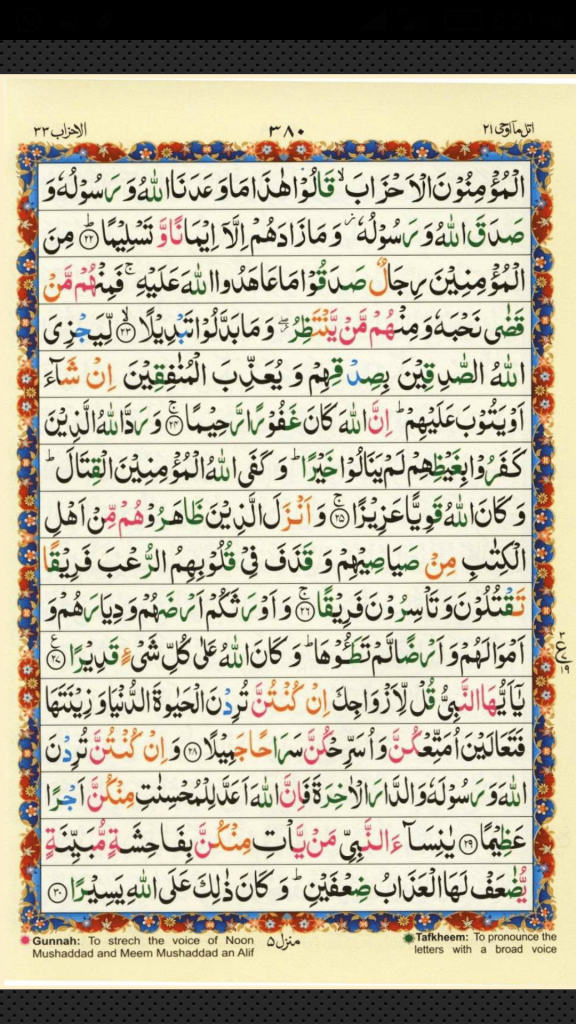 اتل ماۤ اوحی ۲۱ ۳۸۰ الاحزاب ۳۳
الْمُؤْمِنُوْنَ الْاَحْزَابَ ۙ قَالُوْا هٰذَا مَا وَعَدَنَا اللّٰهُ وَ رَسُوْلُهٗ وَ
صَدَقَ اللّٰهُ وَ رَسُوْلُهٗ ؗ وَ مَا زَادَهُمْ اِلَّاۤ اِیْمَانًا وَّ تَسْلِیْمًا ؕ﴿۲۲﴾ مِنَ
الْمُؤْمِنِیْنَ رِجَالٌ صَدَقُوْا مَا عَاهَدُوا اللّٰهَ عَلَیْهِ ۚ فَمِنْهُمْ مَّنْ
قَضٰی نَحْبَهٗ وَ مِنْهُمْ مَّنْ یَّنْتَظِرُ ۖؗ وَ مَا بَدَّلُوْا تَبْدِیْلًا ﴿ۙ۲۳﴾ لِّیَجْزِیَ
اللّٰهُ الصّٰدِقِیْنَ بِصِدْقِهِمْ وَ یُعَذِّبَ الْمُنٰفِقِیْنَ اِنْ شَآءَ
اَوْ یَتُوْبَ عَلَیْهِمْ ؕ اِنَّ اللّٰهَ كَانَ غَفُوْرًا رَّحِیْمًا ﴿ۚ۲۴﴾ وَ رَدَّ اللّٰهُ الَّذِیْنَ
كَفَرُوْا بِغَیْظِهِمْ لَمْ یَنَالُوْا خَیْرًا ؕ وَ كَفَی اللّٰهُ الْمُؤْمِنِیْنَ الْقِتَالَ ؕ
وَ كَانَ اللّٰهُ قَوِیًّا عَزِیْزًا ﴿ۚ۲۵﴾ وَ اَنْزَلَ الَّذِیْنَ ظَاهَرُوْهُمْ مِّنْ اَهْلِ
الْكِتٰبِ مِنْ صَیَاصِیْهِمْ وَ قَذَفَ فِیْ قُلُوْبِهِمُ الرُّعْبَ فَرِیْقًا
تَقْتُلُوْنَ وَ تَاْسِرُوْنَ فَرِیْقًا ﴿ۚ۲۶﴾ وَ اَوْرَثَكُمْ اَرْضَهُمْ وَ دِیَارَهُمْ وَ
اَمْوَالَهُمْ وَ اَرْضًا لَّمْ تَطَـُٔوْهَا ؕ وَ كَانَ اللّٰهُ عَلٰی كُلِّ شَیْءٍ قَدِیْرًا ﴿۲۷﴾ ع
یٰۤاَیُّهَا النَّبِیُّ قُلْ لِّاَزْوَاجِكَ اِنْ كُنْتُنَّ تُرِدْنَ الْحَیٰوةَ الدُّنْیَا وَ زِیْنَتَهَا
فَتَعَالَیْنَ اُمَتِّعْكُنَّ وَ اُسَرِّحْكُنَّ سَرَاحًا جَمِیْلًا ﴿۲۸﴾ وَ اِنْ كُنْتُنَّ تُرِدْنَ
اللّٰهَ وَ رَسُوْلَهٗ وَ الدَّارَ الْاٰخِرَةَ فَاِنَّ اللّٰهَ اَعَدَّ لِلْمُحْسِنٰتِ مِنْكُنَّ اَجْرًا
عَظِیْمًا ﴿۲۹﴾ یٰنِسَآءَ النَّبِیِّ مَنْ یَّاْتِ مِنْكُنَّ بِفَاحِشَةٍ مُّبَیِّنَةٍ
یُّضٰعَفْ لَهَا الْعَذَابُ ضِعْفَیْنِ ؕ وَ كَانَ ذٰلِكَ عَلَی اللّٰهِ یَسِیْرًا ﴿۳۰﴾
۲
ع
۷
۱۹
منزل ۵
Gunnah: To strech the voice of Noon
Mushaddad and Meem Mushaddad an Alif
Tafkheem: To pronounce the
letters with a broad voice